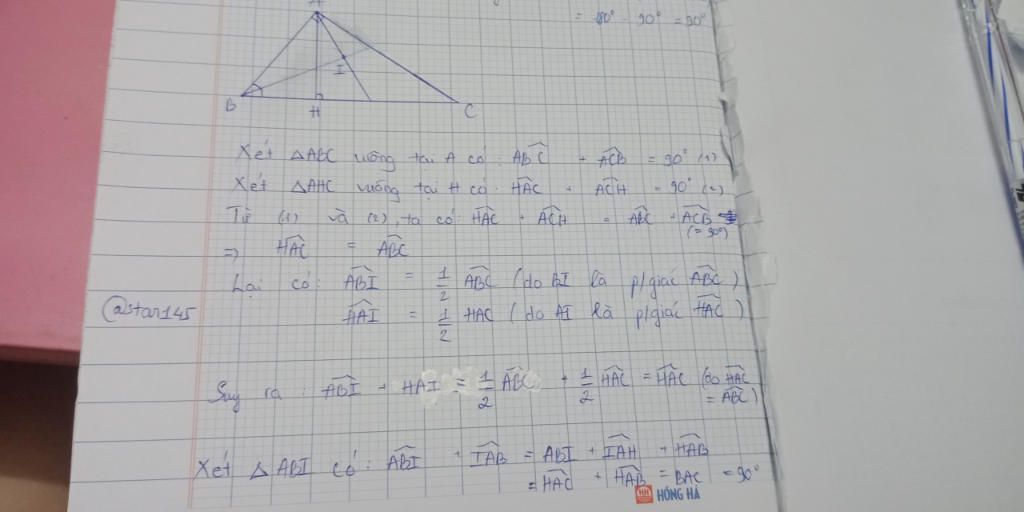 = 180° - 90° = 90°
A
I
B
H
C
Xét △ABC vuông tại A có: ABC + ACB = 90° (1)
Xét △AHC vuông tại H có: HAC + ACH = 90° (2)
Từ (1) và (2), ta có: HAC + ACH = ABC + ACB
(= 90°)
=> HAC = ABC
Lại có: ABI = 1/2 ABC (do BI là p/giác ABC)
HAI = 1/2 HAC (do AI là p/giác HAC)
@star145
Suy ra: ABI + HAI = 1/2 ABC + 1/2 HAC = HAC (do HAC
= ABC)
Xét △ABI có: ABI + IAB = ABI + IAH + HAB
= HAC + HAB = BAC = 90°
HỒNG HÀ